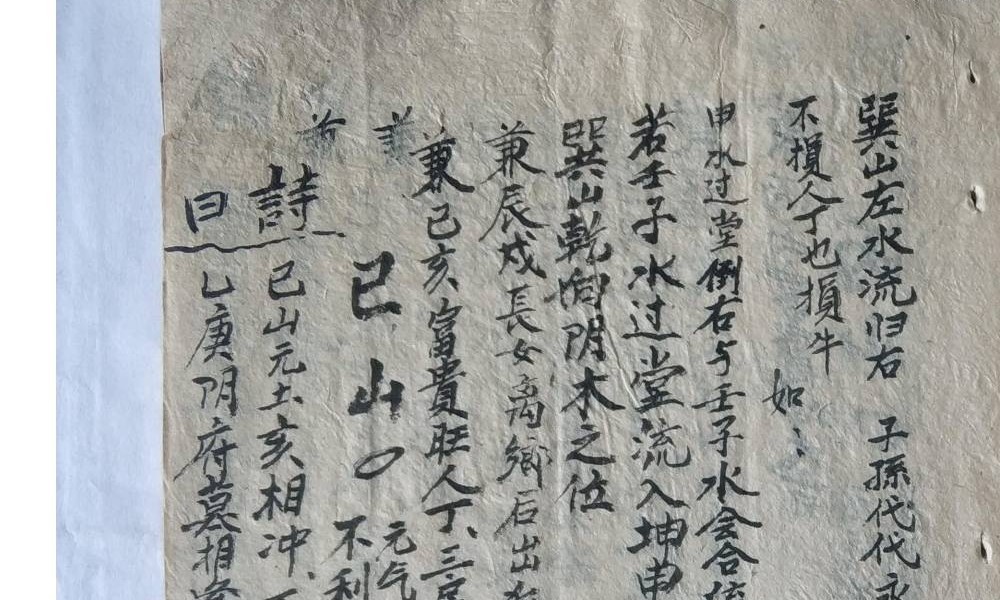 巽山左水流归右 子孫代代永
不損人丁也損牛 如
申水过堂倒右与壬子水会合
若壬子水过堂流入坤申
巽山乾向阴木之位
兼辰戌長女离鄉后出
兼巳亥富貴旺人丁、三
巳山〇 元气
不利
詩 巳山元土亥相冲、
曰 乙庚阴府墓相